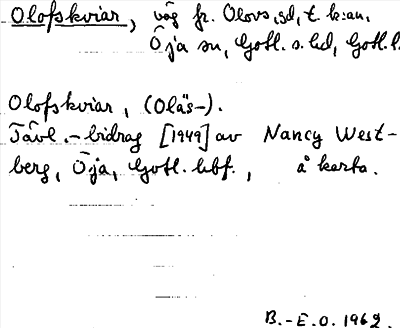 Olofskviar, väg fr. Olovs, gd, t. k:an,
Öja sn, Gotl. s. hd, Gotl. l.
Olofskviar, (Oläs-).
Tävl.-bidrag [1949] av Nancy West-
berg, Öja, Gotl. hbf., å karta.
B.-E.O. 1962.